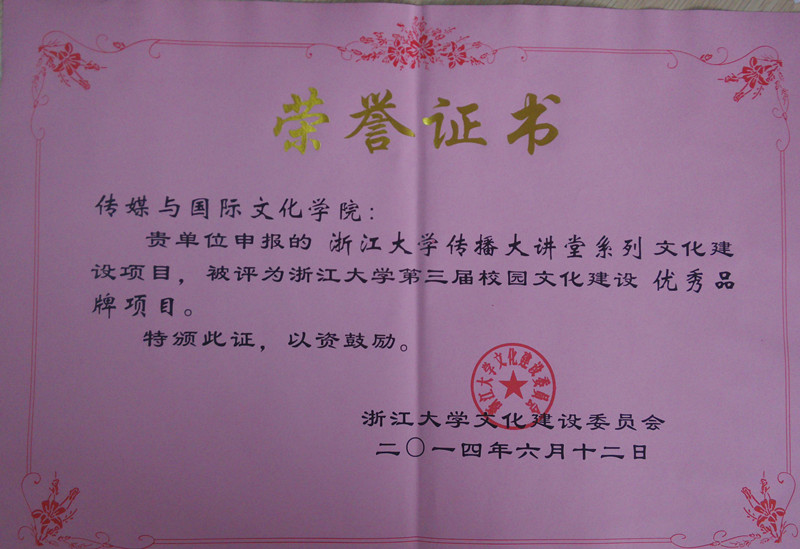 荣誉证书
传媒与国际文化学院：
贵单位申报的 浙江大学传播大讲堂系列 文化建
设项目，被评为浙江大学第三届校园文化建设 优秀品
牌项目。
特颁此证，以资鼓励。
浙江大学文化建设委员会
浙江大学文化建设委员会
二〇一四年六月十二日